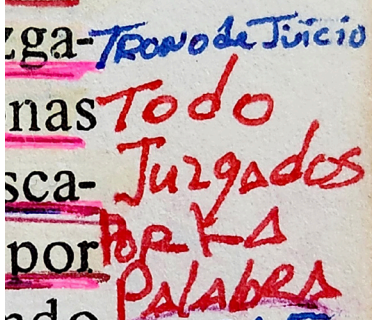 zga- TRONO de Juicio
nas Todo
sca- Juzgados
por POR KA
PALABRA